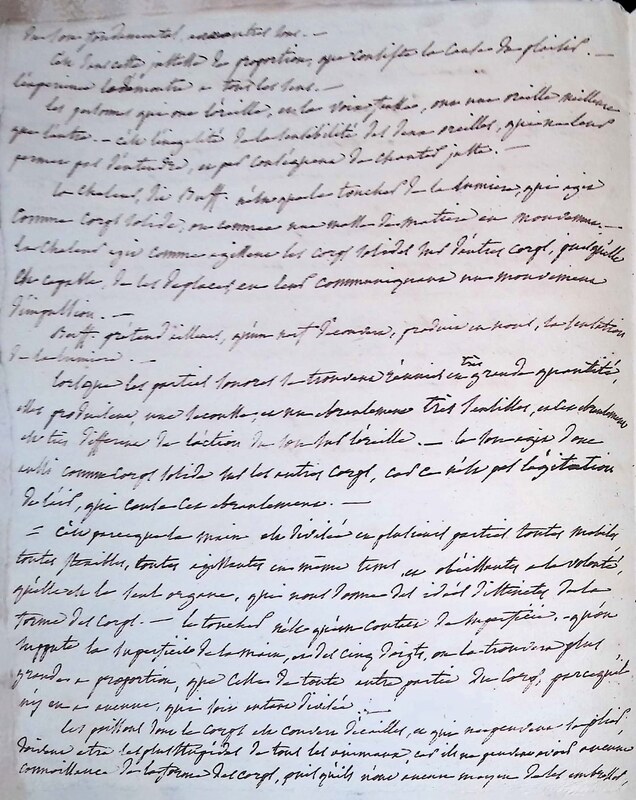 du son fondamental, entre tous. —
C'est dans cette justesse de proportion, que consiste la cause du plaisir. —
l'experience le demontre a tous les sens. —
les personnes qui ont l'oreille, et la voix fausse, ont une oreille meilleure
que l'autre. — c'est l'inegalité de la sensibilité des deux oreilles, qui ne leur
permet pas d'entendre, et par consequent de chanter juste. —
la chaleur, dit Buff. n'est que le toucher de la lumiere, qui agit
comme corps solide, ou comme une masse de matiere en mouvement. —
la chaleur agit comme agissent les corps solides sur d'autres corps, puisqu'elle
est capable, de les deplacer en leur communiquant un mouvement
d'impulsion. —
Buff. pretend d'ailleurs, qu'un nerf produit en nous, la sensation
de la lumiere. —
lorsque les parties sonores se trouvent réunies en très grande quantité,
elles produisent, une secousse, et un ebranlement très sensibles, et cet ebranlement
est très different de l'action du son sur l'oreille. — le son agit donc
comme corps solide sur les autres corps, car ce n'est pas l'agitation
de l'air, qui cause ces ebranlemens. —
= c'est parceque la main est divisée en plusieurs parties toutes mobiles,
toutes flexibles, toutes agissantes en même tems, et obéissantes a la volonté,
qu'elle est le seul organe, qui nous donne des idées distinctes de la
forme des corps. — le toucher n'est qu'un contact de superficie, — qu'on
suppute la superficie de la main, et des cinq doigts, on la trouvera plus
grande a proportion, que celle de toute autre partie du corps, parcequ'il
n'y en a aucune, qui soit autant divisée. —
les poissons dont le corps est couvert d'écailles, et qui ne peuvent se plier,
doivent etre les plus stupides de tous les animaux car ils ne peuvent avoir aucune
connoissance de la forme des corps, puisqu'ils n'ont aucun moyen de les embrasser,